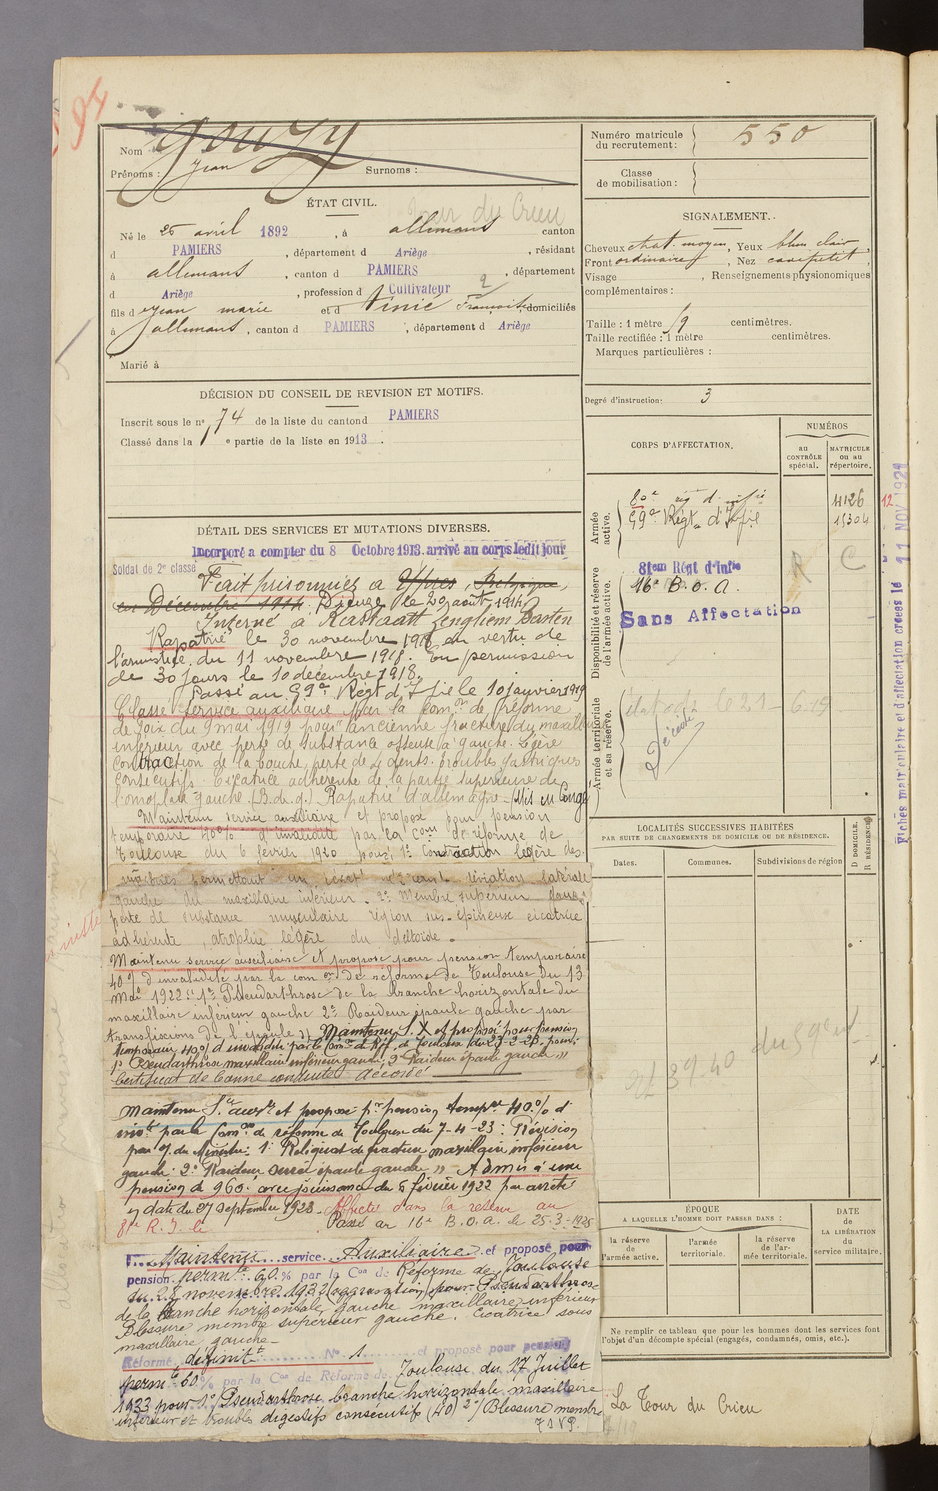 94
Nom Gouzy
Prénoms : Jean Surnoms :
ÉTAT CIVIL.
Tour du Crieu
Né le 25 avril 1892, à allemans canton
d PAMIERS, département d Ariège, résidant
à allemans, canton d PAMIERS, département
d Ariège, profession d Cultivateur
fils d Jean marie et d Françoise, domiciliés
à allemans, canton d PAMIERS, département d Ariège
Marié à
DÉCISION DU CONSEIL DE REVISION ET MOTIFS.
Inscrit sous le n° 74 de la liste du canton d PAMIERS
Classé dans la 1e partie de la liste en 1913.
DÉTAIL DES SERVICES ET MUTATIONS DIVERSES.
Incorporé a compter du 8 Octobre 1913. arrivé au corps ledit jour
Soldat de 2e classe
Fait prisonnier a Ypres, Belgique,
en Décembre 1914 Dieuze le 20 août 1914
Interné à Rastaatt
Rapatrié le 30 novembre 1918 en vertu de
l'armistice du 11 novembre 1918. En permission
de 30 jours le 10 décembre 1918.
Passé au 59e Régt d'Ifie le 10 janvier 1919
Classé service auxiliaire par la Comon de réforme
de Foix du 9 mai 1919 pour "ancienne fracture du maxill.
inférieur avec perte de substance osseuse à gauche. Légère
contraction de la bouche, perte de 4 dents. troubles gastriques
consécutifs. Cicatrice adhérente de la partie supérieure de
l'omoplate gauche. (B. de g.) Rapatrié d'allemagne (Mis en Congé)
Maintenu service auxiliaire et proposé pour pension
temporaire 40% d'invalidité par la Com de réforme de
Toulouse du 6 février 1920 pour 1° Contraction légère des
machoires permettant un écart déviation latérale
gauche du maxillaire inférieur. 2° Membre supérieur gauche
perte de substance musculaire région sus-épineuse cicatrice
adhérente, atrophie légère du deltoïde.
Maintenu service auxiliaire et proposé pour pension temporaire
40% d'invalidité par la com on de réforme de Toulouse du 13
Mai 1922 : 1° Pseudarthrose de la branche horizontale du
maxillaire inférieur gauche 2° Raideur épaule gauche par
transfixions de l'épaule Maintenu S. X et proposé pour pension
temporaire 40% d'invalidité par la Comon de Réf. de Toulouse du 23-2-23. pour:
1° Pseudarthrose maxillaire inférieur gauche; 2° Raideur épaule gauche
Certificat de bonne conduite accordé
Maintenu Sce auxre et proposé pr pension tempre 40% d'
invté par la Comon de réforme de Toulouse du 7-4-23 : Révision
par O. du Ministre. 1° Reliquat de fracture maxillaire inférieur
gauche: 2° Raideur serrée épaule gauche Admis à une
pension de 960f avec jouissance du 6 février 1922 par arrêté
en date du 27 septembre 1923. Affecté dans la réserve au
81e R. I. le
Passé au 16e B.O.A. le 25-3-1925
Maintenu service Auxiliaire et proposé pour
pension permte 60% par la Con de Réforme de Toulouse
du 28 novembre 1932 (aggravation) pour Pseudarthrose
de la branche horizontale gauche maxillaire inférieur
Blessure membre supérieur gauche. Cicatrice sous
maxillaire gauche.
Réformé définitt N° 1. et proposé pour pension
permte 60% par la Con de Réforme de Toulouse du 17 Juillet
1933 pour 1° Pseudarthrose branche horizontale maxillaire
inférieur et troubles digestifs consécutifs (40) 2°/ Blessure membre
Numéro matricule du recrutement : 550
Classe de mobilisation :
SIGNALEMENT.
Cheveux chat. moyen, Yeux bleu clair,
Front ordinaire, Nez cave petit,
Visage , Renseignements physionomiques
complémentaires :
Taille : 1 mètre 59 centimètres.
Taille rectifiée : 1 mètre centimètres.
Marques particulières :
Degré d'instruction : 3
CORPS D'AFFECTATION.
NUMÉROS
au CONTRÔLE spécial.
MATRICULE ou au répertoire.
Armée active.
80e rég d' infie 4126
59e Régt d'Infie 15304
12
Disponibilité et réserve de l'armée active.
81em Régt d'Infie
16e B.O.A.
R C
Sans Affectation
Armée territoriale et sa réserve.
Décédé
Fiches matriculaire et d'affectation créées le 11 NOV 1929
LOCALITÉS SUCCESSIVES HABITÉES
PAR SUITE DE CHANGEMENTS DE DOMICILE OU DE RÉSIDENCE.
Dates. Communes. Subdivisions de région
D DOMICILE. R RÉSIDENCE
ÉPOQUE
A LAQUELLE L'HOMME DOIT PASSER DANS :
la réserve de l'armée active.
l'armée territoriale.
la réserve de l'armée territoriale.
DATE de LA LIBÉRATION du service militaire.
Ne remplir ce tableau que pour les hommes dont les services font
l'objet d'un décompte spécial (engagés, condamnés, omis, etc.).
La Tour du Crieu